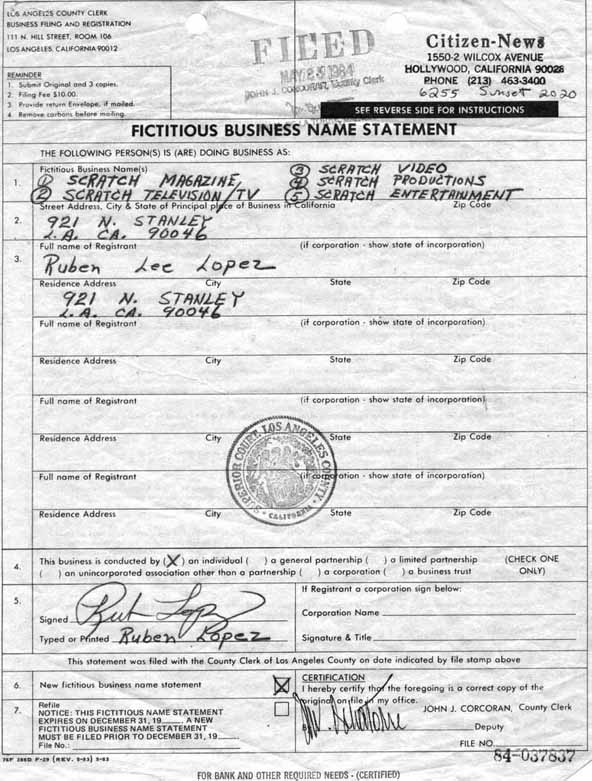 LOS ANGELES COUNTY CLERK
BUSINESS FILING AND REGISTRATION
111 N. HILL STREET, ROOM 106
LOS ANGELES, CALIFORNIA 90012
REMINDER
1. Submit Original and 3 copies.
2. Filing Fee $10.00.
3. Provide return Envelope, if mailed.
4. Remove carbons before mailing.
FILED
MAY 25 1984
JOHN J. CORCORAN, County Clerk
Citizen-News
1550-2 WILCOX AVENUE
HOLLYWOOD, CALIFORNIA 90028
PHONE (213) 463-3400
6255 Sunset 2020
SEE REVERSE SIDE FOR INSTRUCTIONS
FICTITIOUS BUSINESS NAME STATEMENT
THE FOLLOWING PERSON(S) IS (ARE) DOING BUSINESS AS:
Fictitious Business Name(s)
1. ① SCRATCH MAGAZINE, ③ SCRATCH VIDEO
④ SCRATCH PRODUCTIONS
② SCRATCH TELEVISION/TV ⑤ SCRATCH ENTERTAINMENT
Street Address, City & State of Principal place of Business in California Zip Code
2. 921 N. STANLEY
L.A. CA. 90046
Full name of Registrant (if corporation - show state of incorporation)
3. Ruben Lee Lopez
Residence Address City State Zip Code
921 N. STANLEY
L.A. CA. 90046
Full name of Registrant (if corporation - show state of incorporation)
Residence Address City State Zip Code
Full name of Registrant (if corporation - show state of incorporation)
Residence Address City State Zip Code
Full name of Registrant (if corporation - show state of incorporation)
Residence Address City State Zip Code
SUPERIOR COURT, LOS ANGELES COUNTY, CALIFORNIA
4. This business is conducted by (X) an individual ( ) a general partnership ( ) a limited partnership (CHECK ONE
( ) an unincorporated association other than a partnership ( ) a corporation ( ) a business trust ONLY)
5. If Registrant a corporation sign below:
Signed Corporation Name
Typed or Printed Ruben Lopez Signature & Title
This statement was filed with the County Clerk of Los Angeles County on date indicated by file stamp above
6. New fictitious business name statement X
CERTIFICATION
I hereby certify that the foregoing is a correct copy of the
original on file in my office.
JOHN J. CORCORAN, County Clerk
Deputy
7. Refile
NOTICE: THIS FICTITIOUS NAME STATEMENT
EXPIRES ON DECEMBER 31, 19____. A NEW
FICTITIOUS BUSINESS NAME STATEMENT
MUST BE FILED PRIOR TO DECEMBER 31, 19____.
File No.:
FILE NO. 84-037837
76F 386D F-29 (REV. 5-83) 5-83
FOR BANK AND OTHER REQUIRED NEEDS - (CERTIFIED)